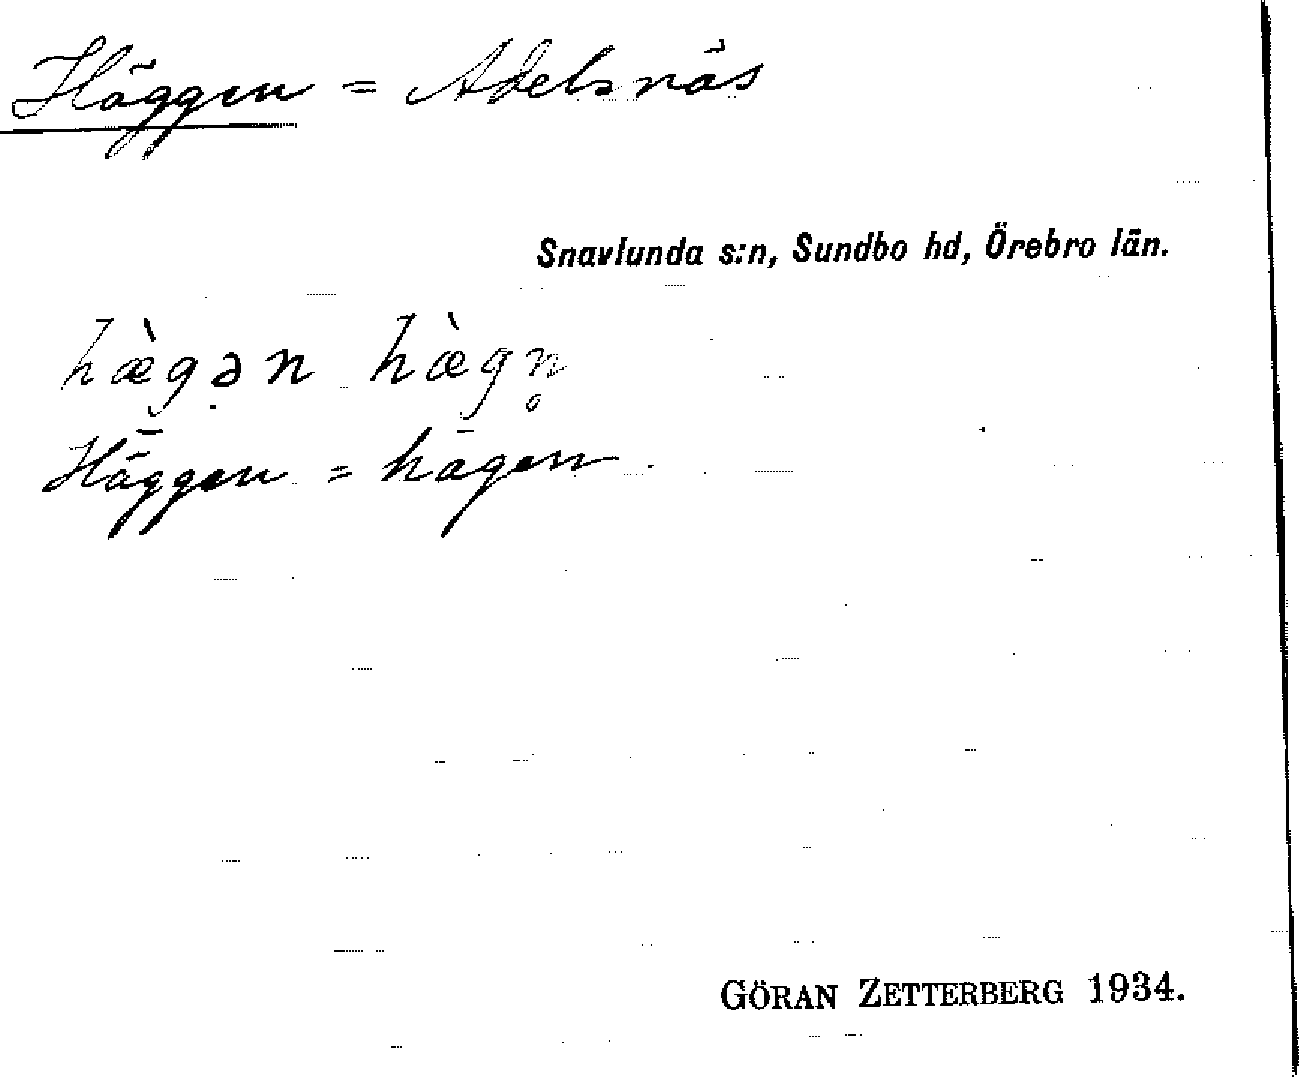 Häggen = Adelsnäs
Snavlunda s:n, Sundbo hd, Örebro län.
hæ̀gən hæ̀gn̥
Häggen = hägen
GÖRAN ZETTERBERG 1934.